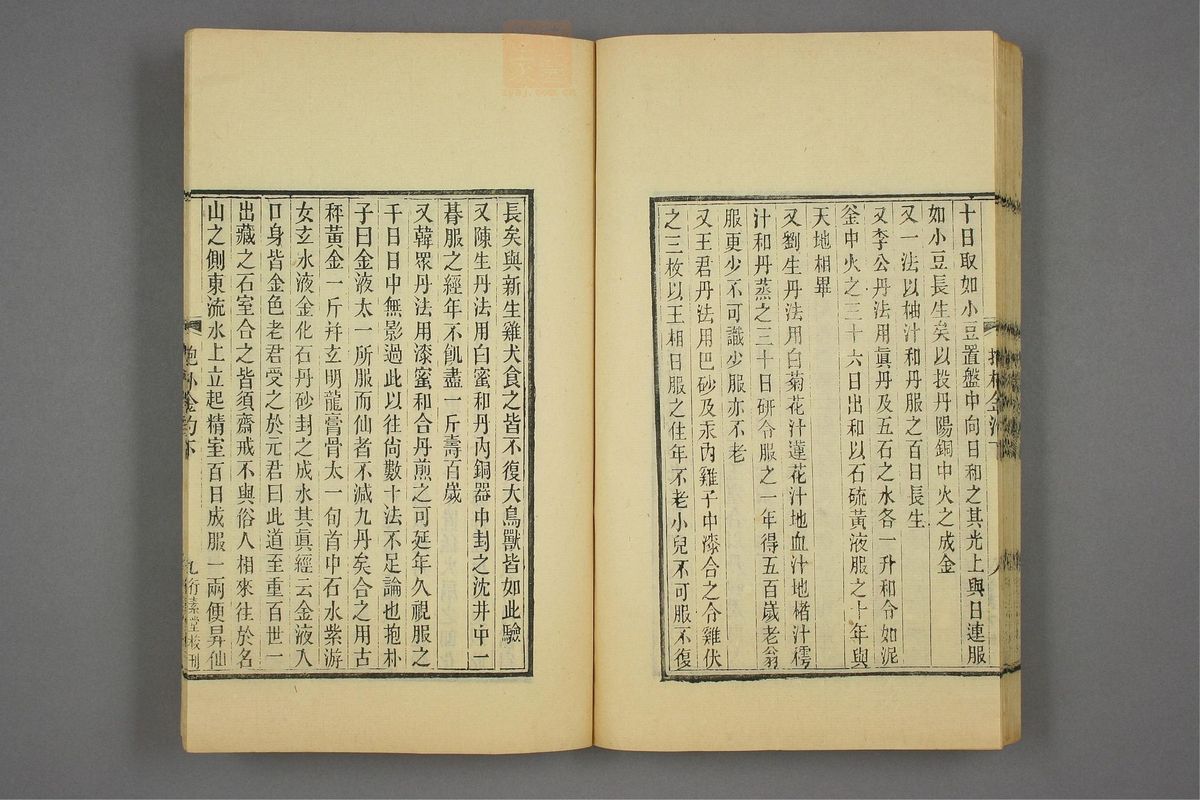 十日取如小豆置盤中向日和之其光上與日連服
如小豆長生矣以投丹陽銅中火之成金
又一法以柚汁和丹服之百日長生
又李公丹法用眞丹及五石之水各一升和令如泥
釜中火之三十六日出和以石硫黃液服之十年與
天地相畢
又劉生丹法用白菊花汁蓮花汁地血汁地楮汁樗
汁和丹蒸之三十日研令服之一年得五百歲老翁
服更少不可識少服亦不老
又王君丹法用巴砂及汞內雞子中漆合之令雞伏
之三枚以王相日服之住年不老小兒不可服不復
長矣與新生雞犬食之皆不復大鳥獸皆如此驗
又陳生丹法用白蜜和丹內銅器中封之沈井中一
朞服之經年不飢盡一斤壽百歲
又韓眾丹法用漆蜜和合丹煎之可延年久視服之
千日日中無影過此以往尙數十法不足論也抱朴
子曰金液太一所服而仙者不減九丹矣合之用古
秤黃金一斤幷玄明龍膏骨太一旬首中石水紫游
女玄水液金化石丹砂封之成水其眞經云金液入
口身皆金色老君受之於元君曰此道至重百世一
出藏之石室合之皆須齋戒不與俗人相來往於名
山之側東流水上立起精室百日成服一兩便昇仙
九行素堂校刊